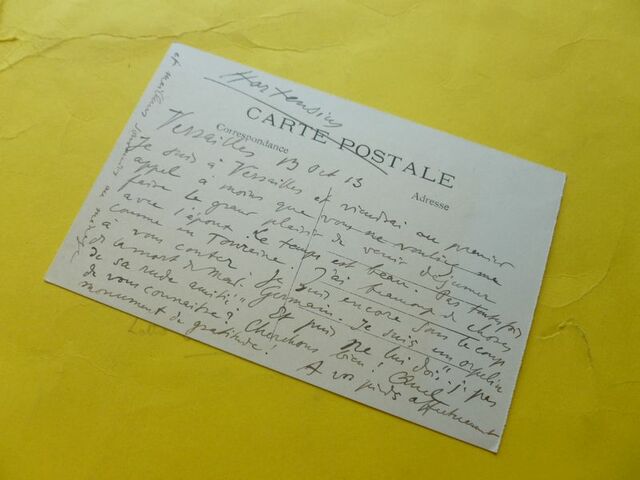 Hortensius
CARTE POSTALE
Correspondance
Adresse
Versailles 13 Oct 13
Je suis à Versailles et viendrai au premier
appel à moins que vous ne vouliez me
faire le grand plaisir de venir déjeuner
avec l'époux. Le temps est beau.
comme en Touraine. J'ai beaucoup de choses
à vous conter. Je suis encore sous le coup
de la mort de Mad. Germain. Je suis un orphelin
de sa rude amitié. Et puis ne lui dois-je pas
de vous connaître? Cherchons bien! Quel
monument de gratitude!
A vos pieds affectueusement
et meilleurs souvenirs au